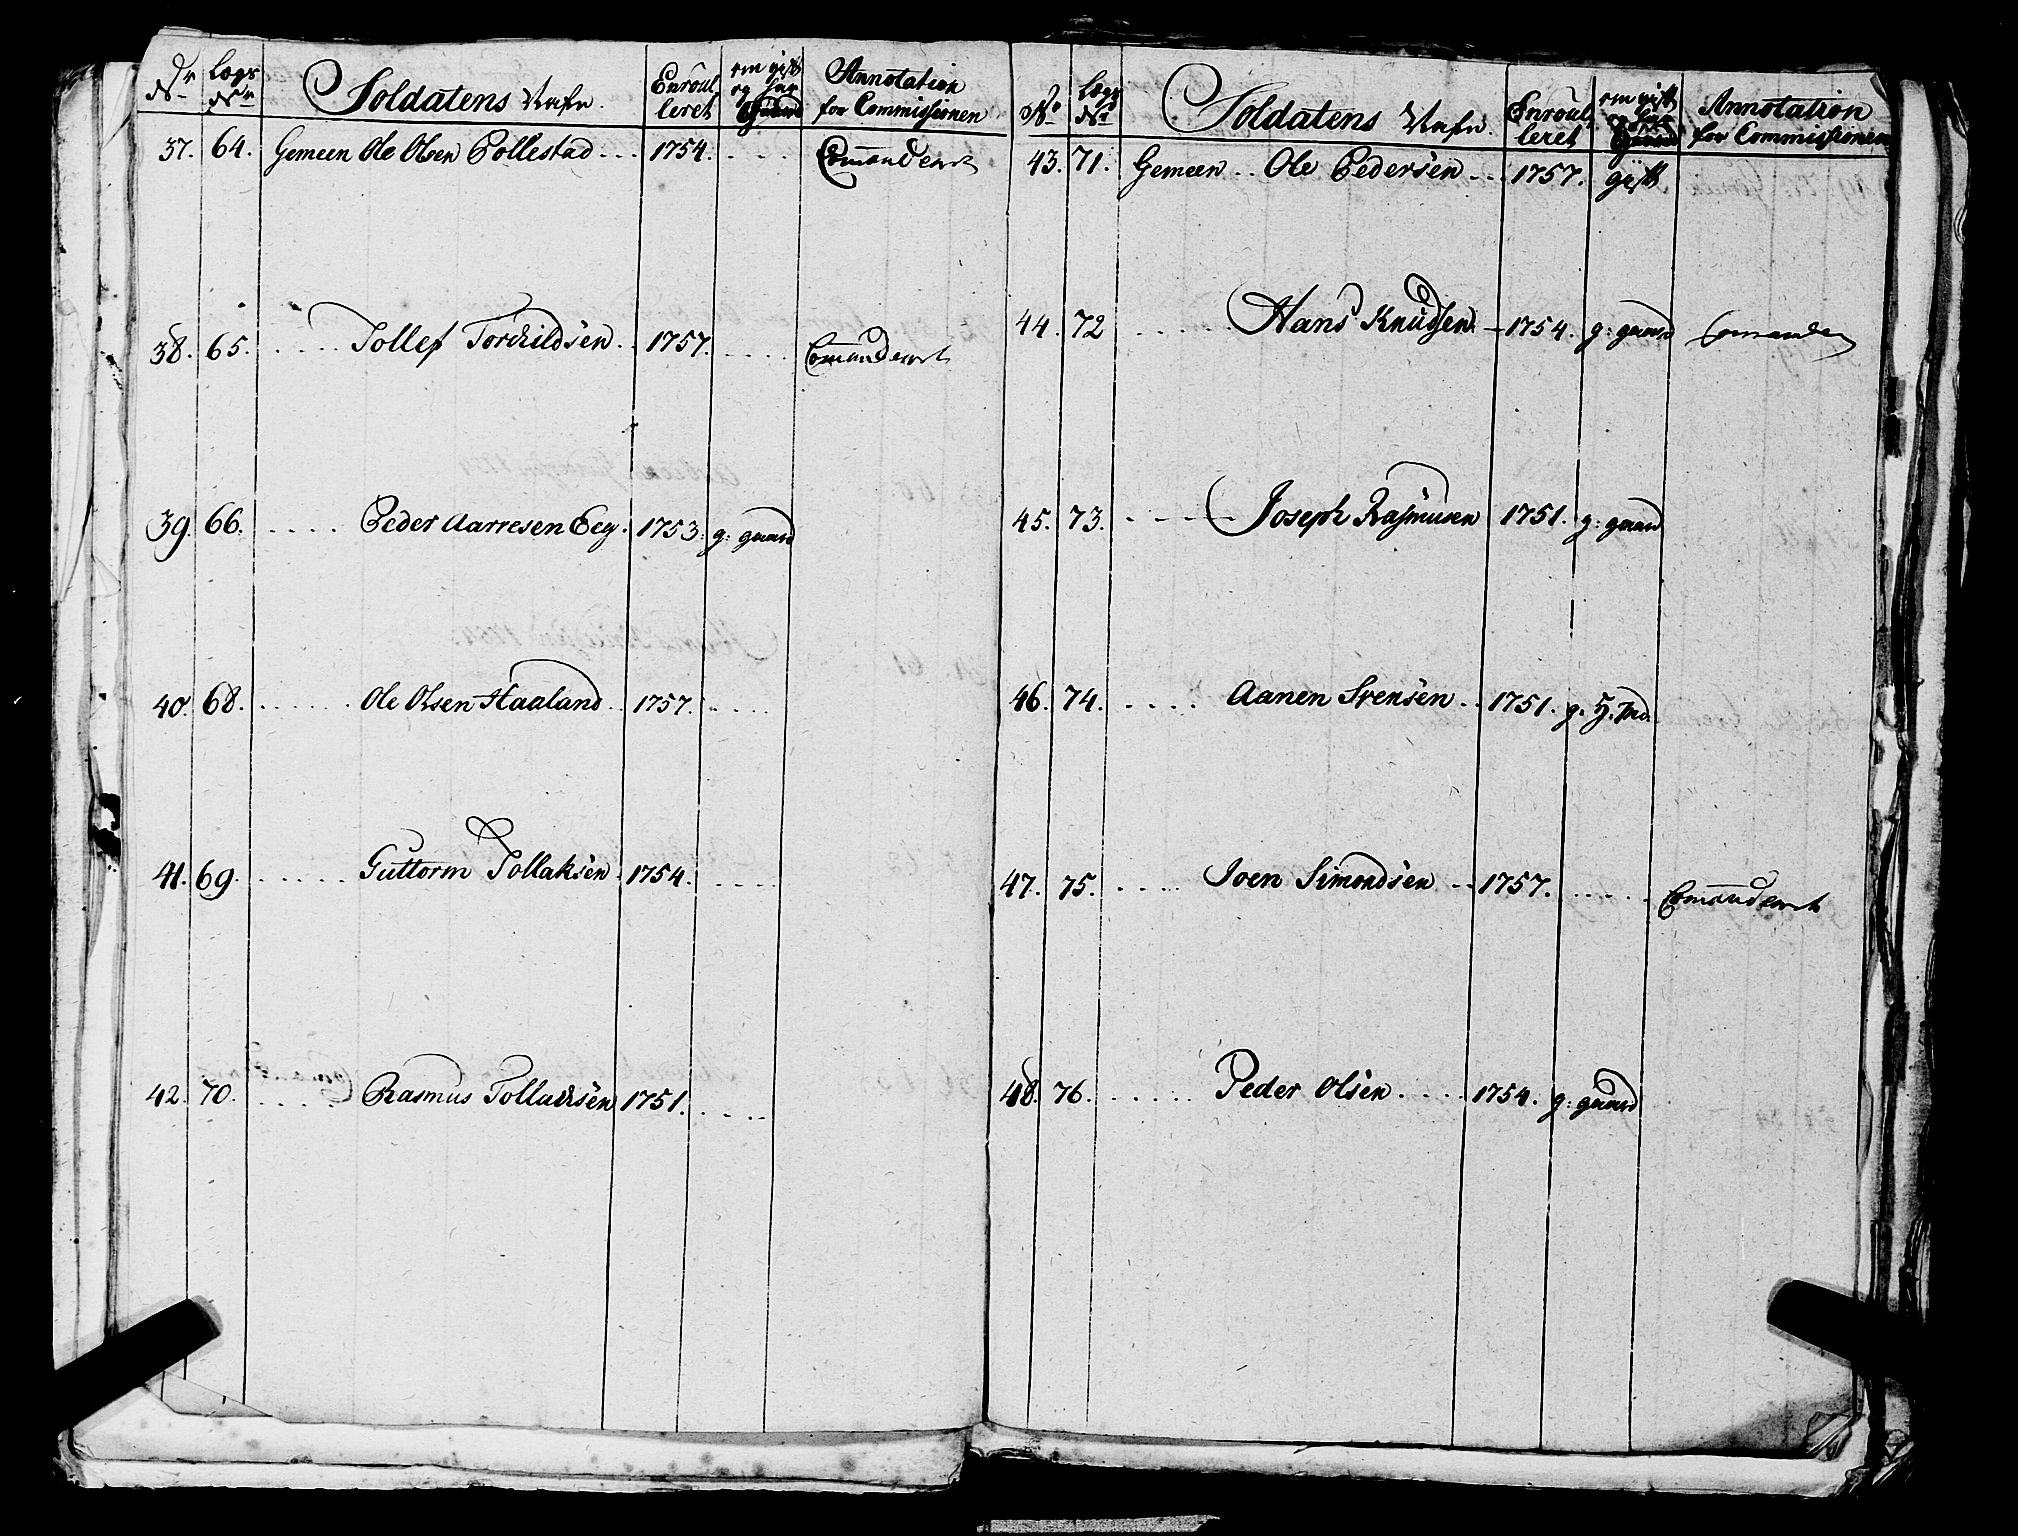 No Lægs No Soldatens Nafn. Enroulleret om gift og har Gaard Annotation for Commissionen
37. 64. Gemeen Ole Olsen Pollestad 1754. Comanderet
38. 65. Tollef Torchildsen 1757. Comanderet
39. 66. Peder Aarresen Eeg. 1753. g: gaard
40. 68. Ole Olsen Haaland 1757.
41. 69. Guttorm Tollaksen 1754.
42. 70. Rasmus Tollachsen 1751.
No Lægs No Soldatens Nafn. Enroulleret om gift og har Gaard Annotation for Commissionen
43. 71. Gemeen Ole Pedersen 1757. gift
44. 72 Hans Knudsen 1754. g: gaard
45. 73. Joseph Rasmusen 1751. g: gaard
46. 74. Aanen Svensen 1751. g.
47. 75. Joen Simondsen 1757. Comanderet
48. 76. Peder Olsen 1754. g: gaard